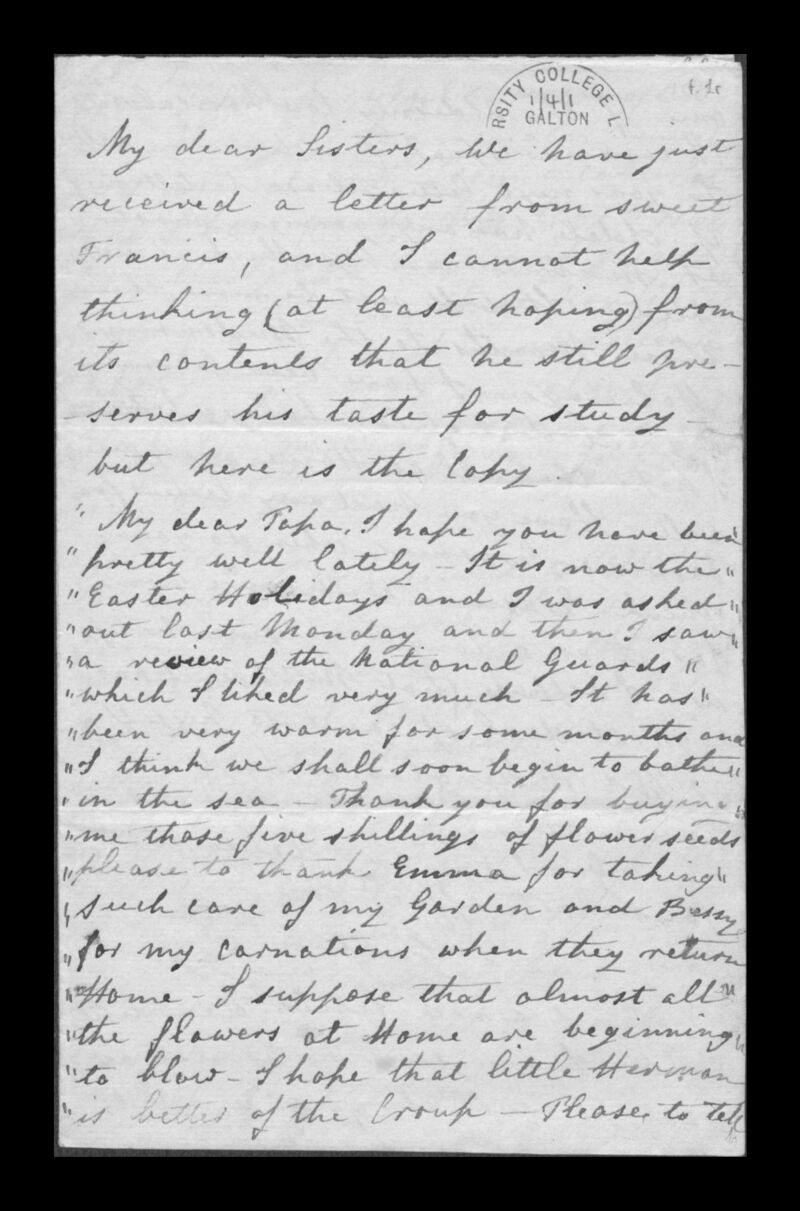 RSITY COLLEGE L
1/4/1
GALTON
f. 1r
My dear Sisters, We have just
received a letter from sweet
Francis, and I cannot help
thinking (at least hoping) from
its contents that he still pre-
-serves his taste for study -
but here is the Copy.
" My dear Papa, I hope you have been "
" pretty well lately - It is now the "
" Easter Holidays and I was asked "
" out last Monday and then I saw "
" a review of the National Guards "
" which I liked very much - It has "
" been very warm for some months and
" I think we shall soon begin to bathe "
" in the sea - Thank you for buying "
" me those five shillings of flower seeds
" please to thank Emma for taking "
" such care of my Garden and Bessy
" for my carnations when they return
" Home - I suppose that almost all "
" the flowers at Home are beginning "
" to blow - I hope that little Herman
" is better of the Croup - Please to tell